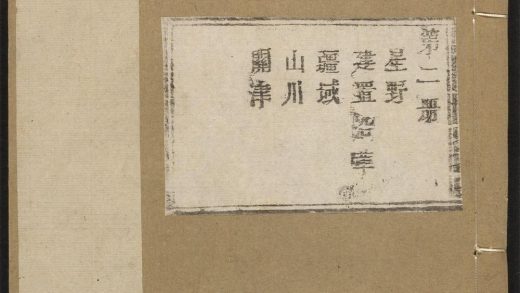 第二册
星野
建置沿革
疆域
山川
關津